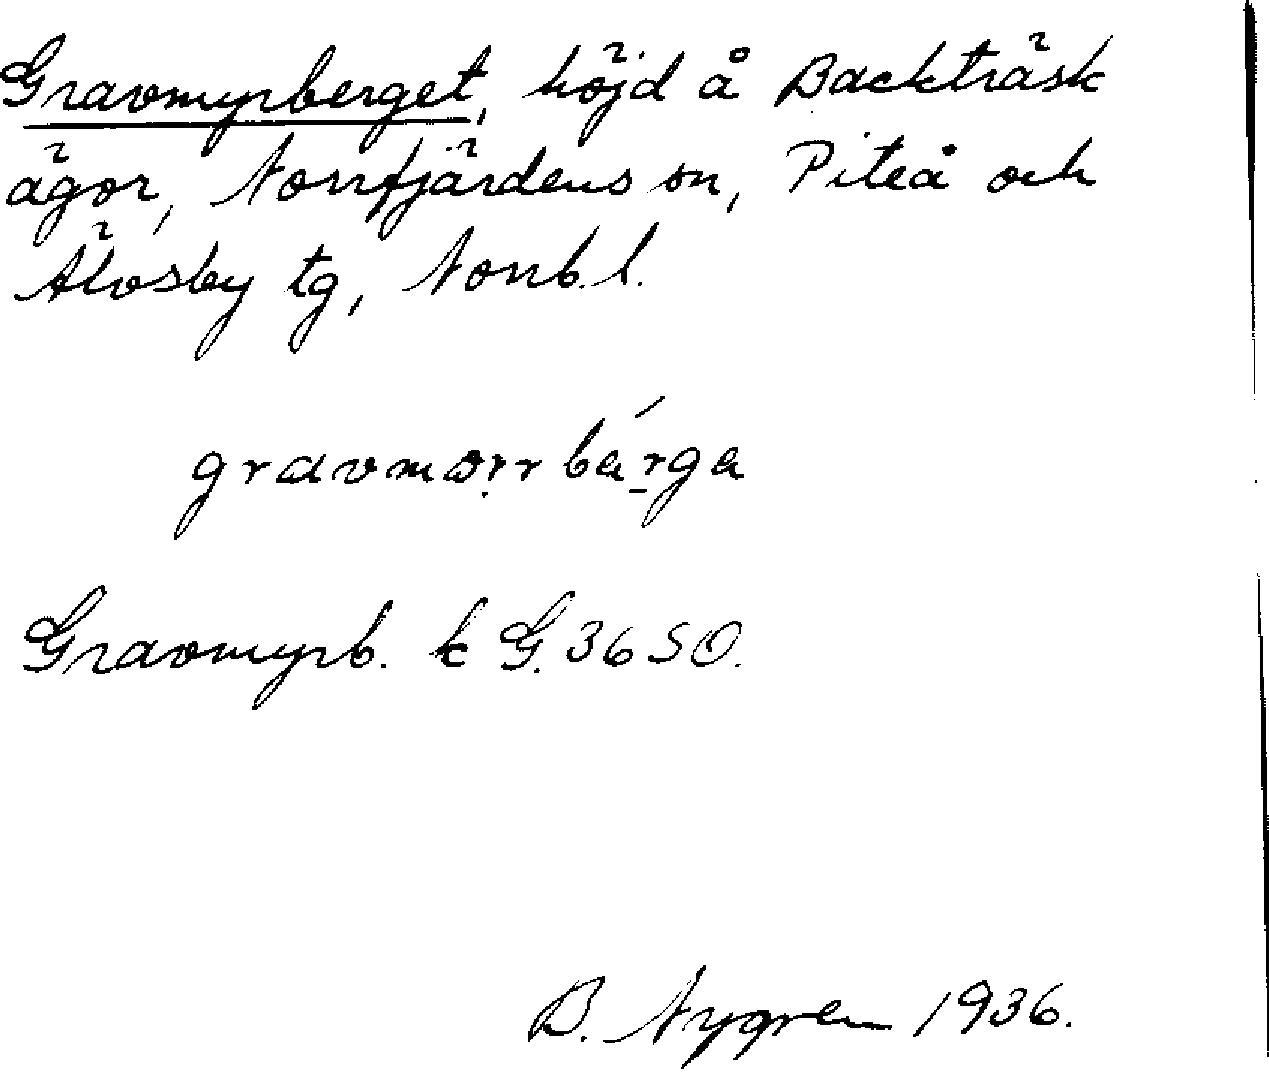 Gravmyrberget, höjd å Backträsk
ägor, Norrfjärdens sn, Piteå och
Älvsby tg, Norrb. l.
gravmørrbárga
Gravmyrb. k G. 3650.
B. Nygren 1936.